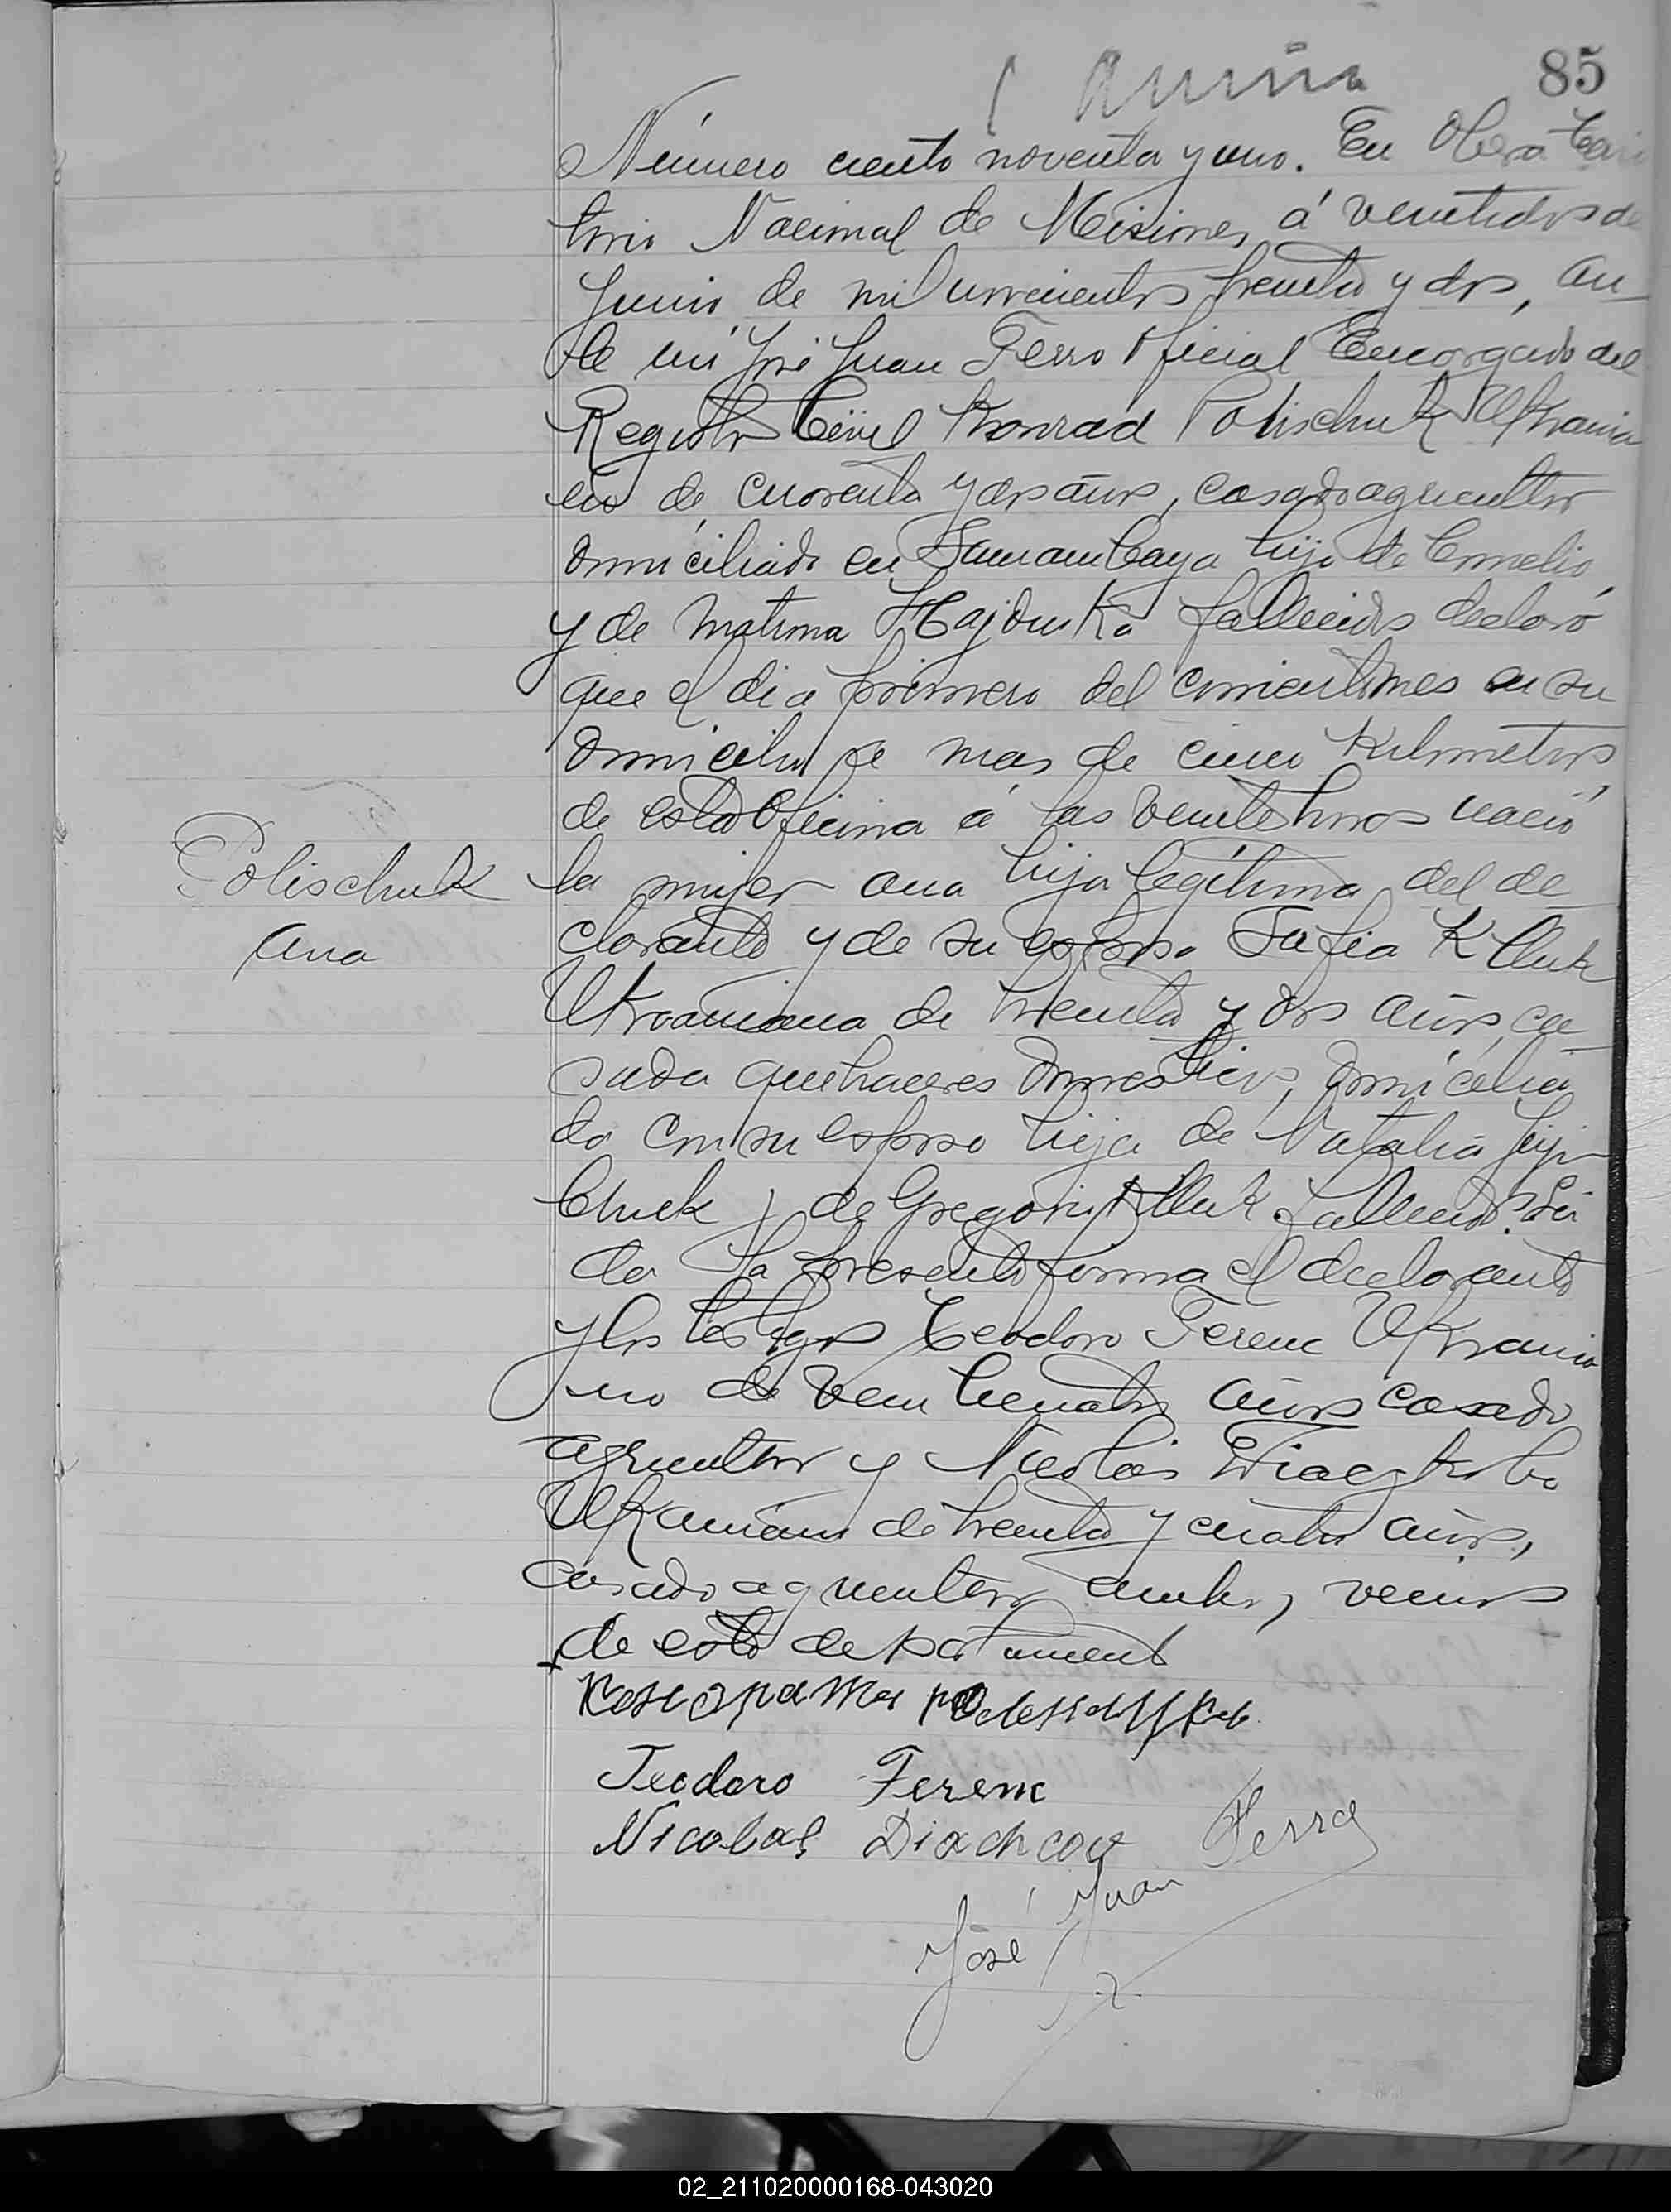 85
Número ciento noventa y uno. En Oberá Terri
torio Nacional de Misiones, á veintidos de
Junio de mil novecientos treinta y dos, an-
te mi José Juan Ferro Oficial Encargado del
Registro Civil Konrad Polischuk Ukrania
no de cuarenta y dos años, casado agricultor
domiciliado en Samambaya hijo de Cornelio
y de Matrona Hajduska fallecidos declaró
que el dia primero del corriente mes en su
domicilio de mas de cinco kilometros
de esta Oficina á las veinte horas nació
Polischuk
Ana
la mujer Ana hija legítima del de
clarante y de su esposa Sofia
Ukraniana de treinta y dos años, ca-
sada quehaceres domesticos, domicilia
da con su esposo hija de Natalia
chuek y de Gregorio fallecidos. Lei
da la presente firma el declarante
y los testigos Teodoro Ferenc Ukrania
no de veinticuatro años casado
agricultor y Nicolás
Ukraniano de treinta y cuatro años,
casado agricultor ambos, vecinos
de este departamento
Teodoro Ferenc
Nicolas Diachcow
José Juan Ferro
02_211020000168-043020